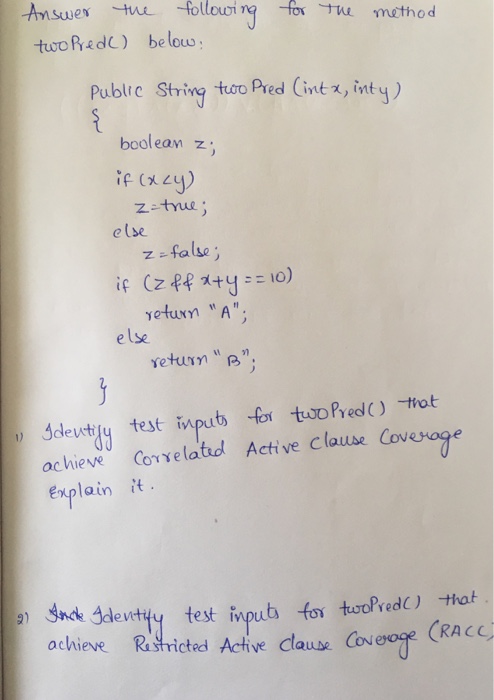 Answer the following for the method
twoPred() below:
Public String twoPred (int x, int y)
{
boolean z;
if (x<y)
z=true;
else
z=false;
if (z && x+y == 10)
return "A";
else
return "B";
}
1) Identify test inputs for twoPred() that
achieve Correlated Active Clause Coverage
Explain it.
2) Identify test inputs for twoPred() that
achieve Restricted Active Clause Coverage (RACC)